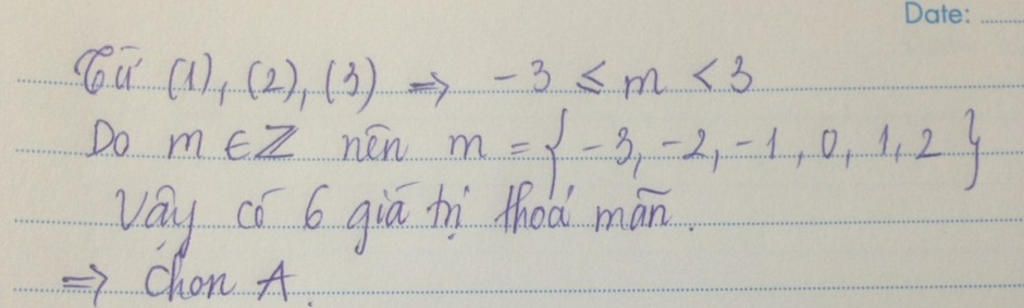 Date: ......
Từ (1), (2), (3) => -3 ≤ m < 3
Do m ∈ Z nên m = { -3, -2, -1, 0, 1, 2 }
Vậy có 6 giá trị thoả mãn.
=> Chọn A.